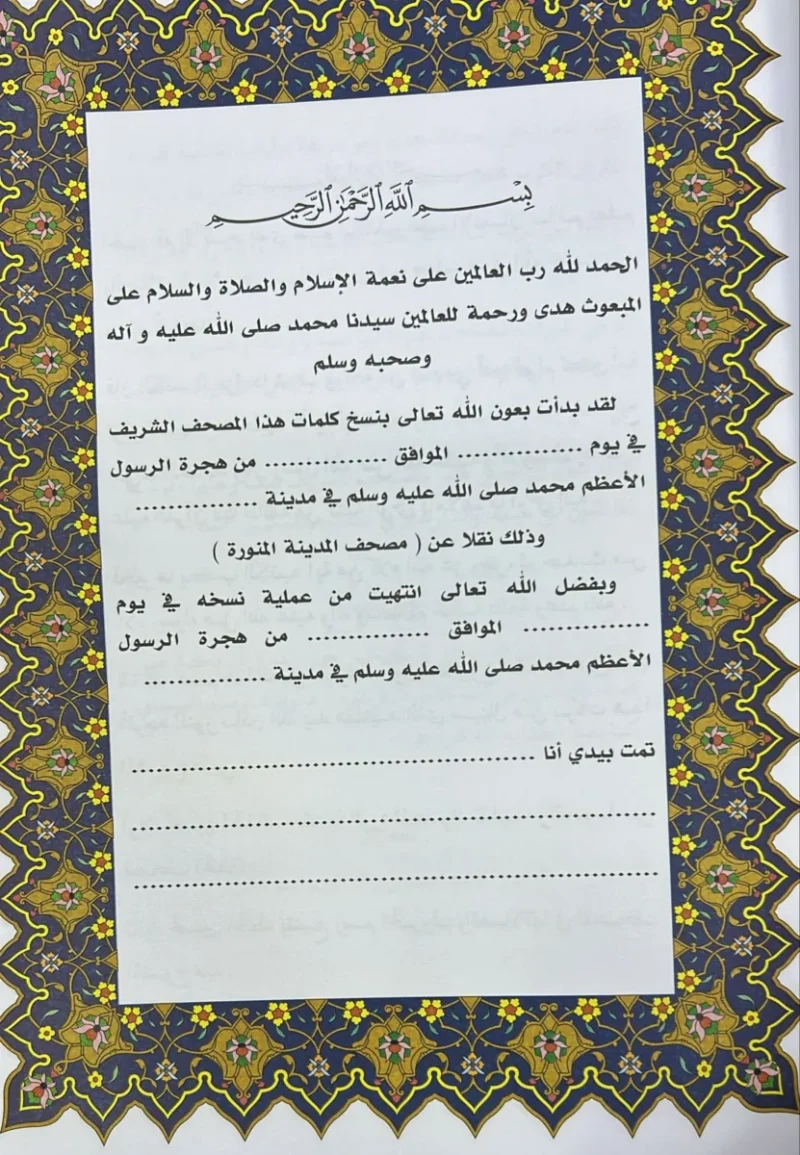 بِسْمِ ٱللَّهِ ٱلرَّحْمَٰنِ ٱلرَّحِيمِ
الحمد لله رب العالمين على نعمة الإسلام والصلاة والسلام على
المبعوث هدى ورحمة للعالمين سيدنا محمد صلى الله عليه و آله
وصحبه وسلم
لقد بدأت بعون الله تعالى بنسخ كلمات هذا المصحف الشريف
في يوم ............... الموافق ............... من هجرة الرسول
الأعظم محمد صلى الله عليه وسلم في مدينة ...............
وذلك نقلا عن ( مصحف المدينة المنورة )
وبفضل الله تعالى انتهيت من عملية نسخه في يوم
............... الموافق ............... من هجرة الرسول
الأعظم محمد صلى الله عليه وسلم في مدينة ...............
تمت بيدي أنا ..................................................
..................................................................
..................................................................